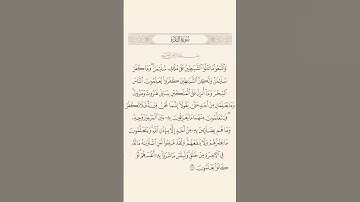 سورة البقرة
واتبعوا ما تتلوا الشيطين على ملك سليمن وما كفر
سليمن ولكن الشيطين كفروا يعلمون الناس
السحر وما أنزل على الملكين ببابل هروت ومروت
وما يعلمان من أحد حتى يقولا إنما نحن فتنة فلا تكفر
فيتعلمون منهما ما يفرقون به بين المرء وزوجه
وما هم بضارين به من أحد إلا بإذن الله ويتعلمون
ما يضرهم ولا ينفعهم ولقد علموا لمن اشترىه ما له
في الآخرة من خلق ولبئس ما شروا به أنفسهم لو
كانوا يعلمون